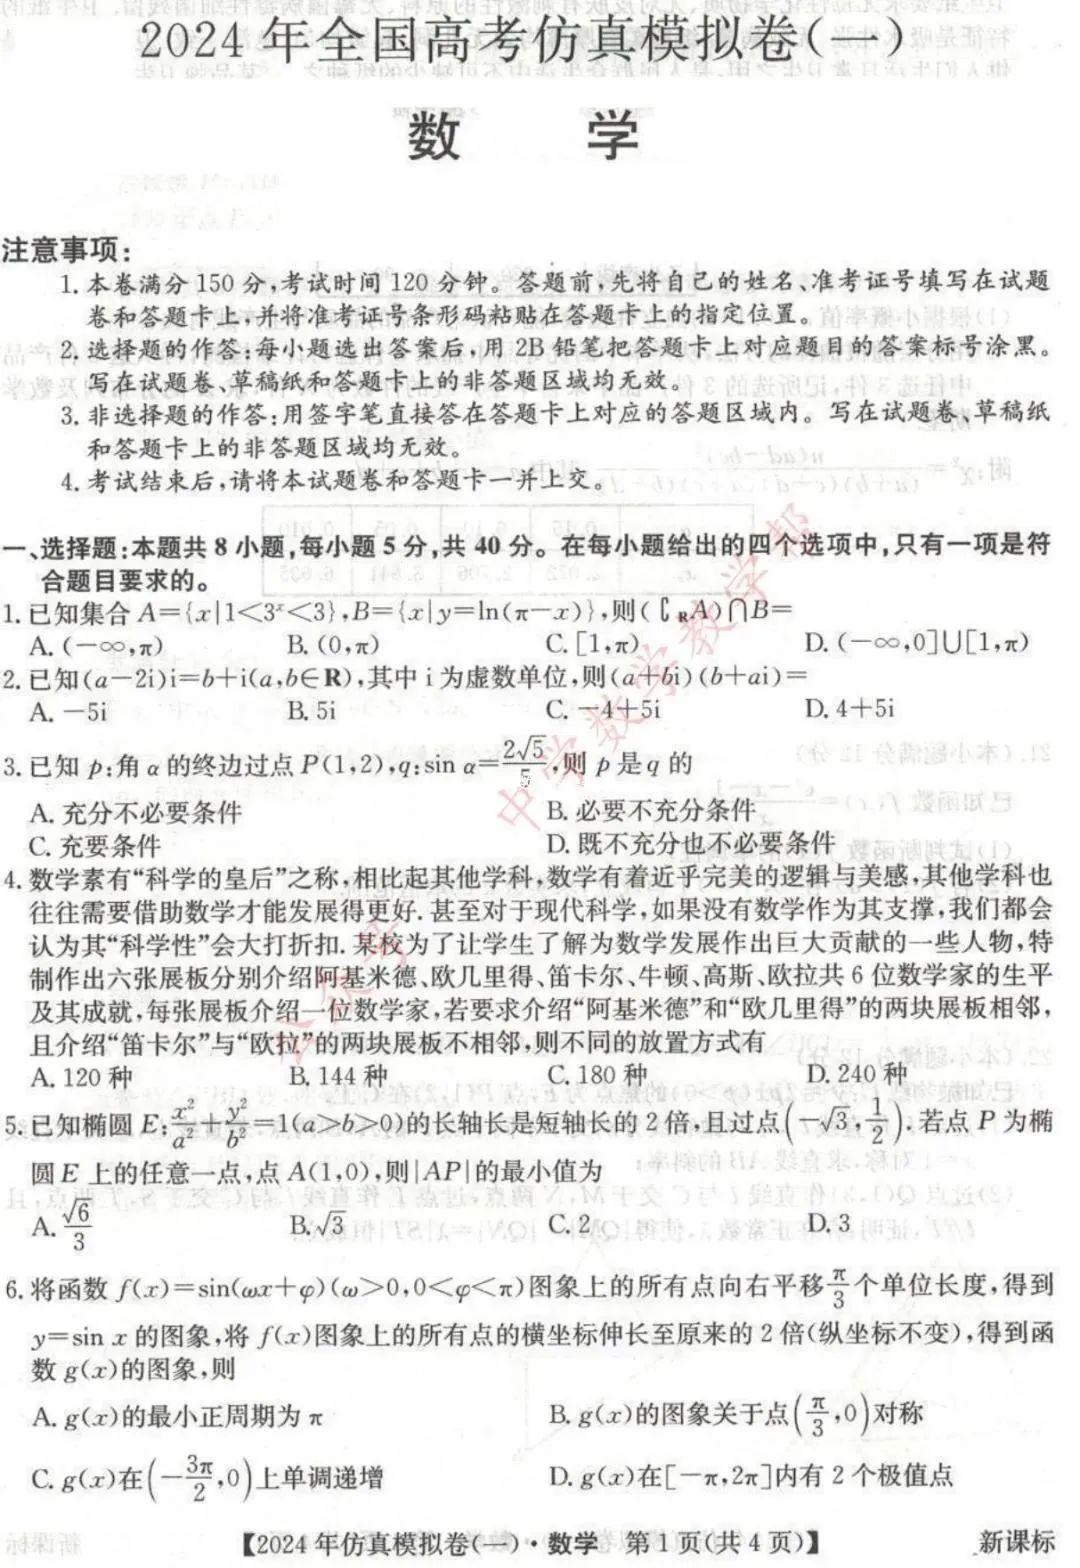 2024年全国高考仿真模拟卷(一)
数 学
注意事项:
1.本卷满分150分,考试时间120分钟。答题前,先将自己的姓名、准考证号填写在试题
卷和答题卡上,并将准考证号条形码粘贴在答题卡上的指定位置。
2.选择题的作答:每小题选出答案后,用2B铅笔把答题卡上对应题目的答案标号涂黑。
写在试题卷、草稿纸和答题卡上的非答题区域均无效。
3.非选择题的作答:用签字笔直接答在答题卡上对应的答题区域内。写在试题卷、草稿纸
和答题卡上的非答题区域均无效。
4.考试结束后,请将本试题卷和答题卡一并上交。
一、选择题:本题共8小题,每小题5分,共40分。在每小题给出的四个选项中,只有一项是符
合题目要求的。
1.已知集合A={x|1<3^x<3},B={x|y=ln(π-x)},则(∁_R A)∩B=
A.(-∞,π) B.(0,π) C.[1,π) D.(-∞,0]∪[1,π)
2.已知(a-2i)i=b+i(a,b∈R),其中i为虚数单位,则(a+bi)(b+ai)=
A.-5i B.5i C.-4+5i D.4+5i
3.已知p:角α的终边过点P(1,2),q:sin α=2√5/5,则p是q的
A.充分不必要条件 B.必要不充分条件
C.充要条件 D.既不充分也不必要条件
4.数学素有“科学的皇后”之称,相比起其他学科,数学有着近乎完美的逻辑与美感,其他学科也
往往需要借助数学才能发展得更好.甚至对于现代科学,如果没有数学作为其支撑,我们都会
认为其“科学性”会大打折扣.某校为了让学生了解为数学发展作出巨大贡献的一些人物,特
制作出六张展板分别介绍阿基米德、欧几里得、笛卡尔、牛顿、高斯、欧拉共6位数学家的生平
及其成就,每张展板介绍一位数学家,若要求介绍“阿基米德”和“欧几里得”的两块展板相邻,
且介绍“笛卡尔”与“欧拉”的两块展板不相邻,则不同的放置方式有
A.120种 B.144种 C.180种 D.240种
5.已知椭圆E:x²/a²+y²/b²=1(a>b>0)的长轴长是短轴长的2倍,且过点(-√3,1/2).若点P为椭
圆E上的任意一点,点A(1,0),则|AP|的最小值为
A.√6/3 B.√3 C.2 D.3
6.将函数f(x)=sin(ωx+φ)(ω>0,0<φ<π)图象上的所有点向右平移π/3个单位长度,得到
y=sin x的图象,将f(x)图象上的所有点的横坐标伸长至原来的2倍(纵坐标不变),得到函
数g(x)的图象,则
A.g(x)的最小正周期为π B.g(x)的图象关于点(π/3,0)对称
C.g(x)在(-3π/2,0)上单调递增 D.g(x)在[-π,2π]内有2个极值点
【2024年仿真模拟卷(一)·数学 第1页(共4页)】 新课标
公众号 中学数学教学帮